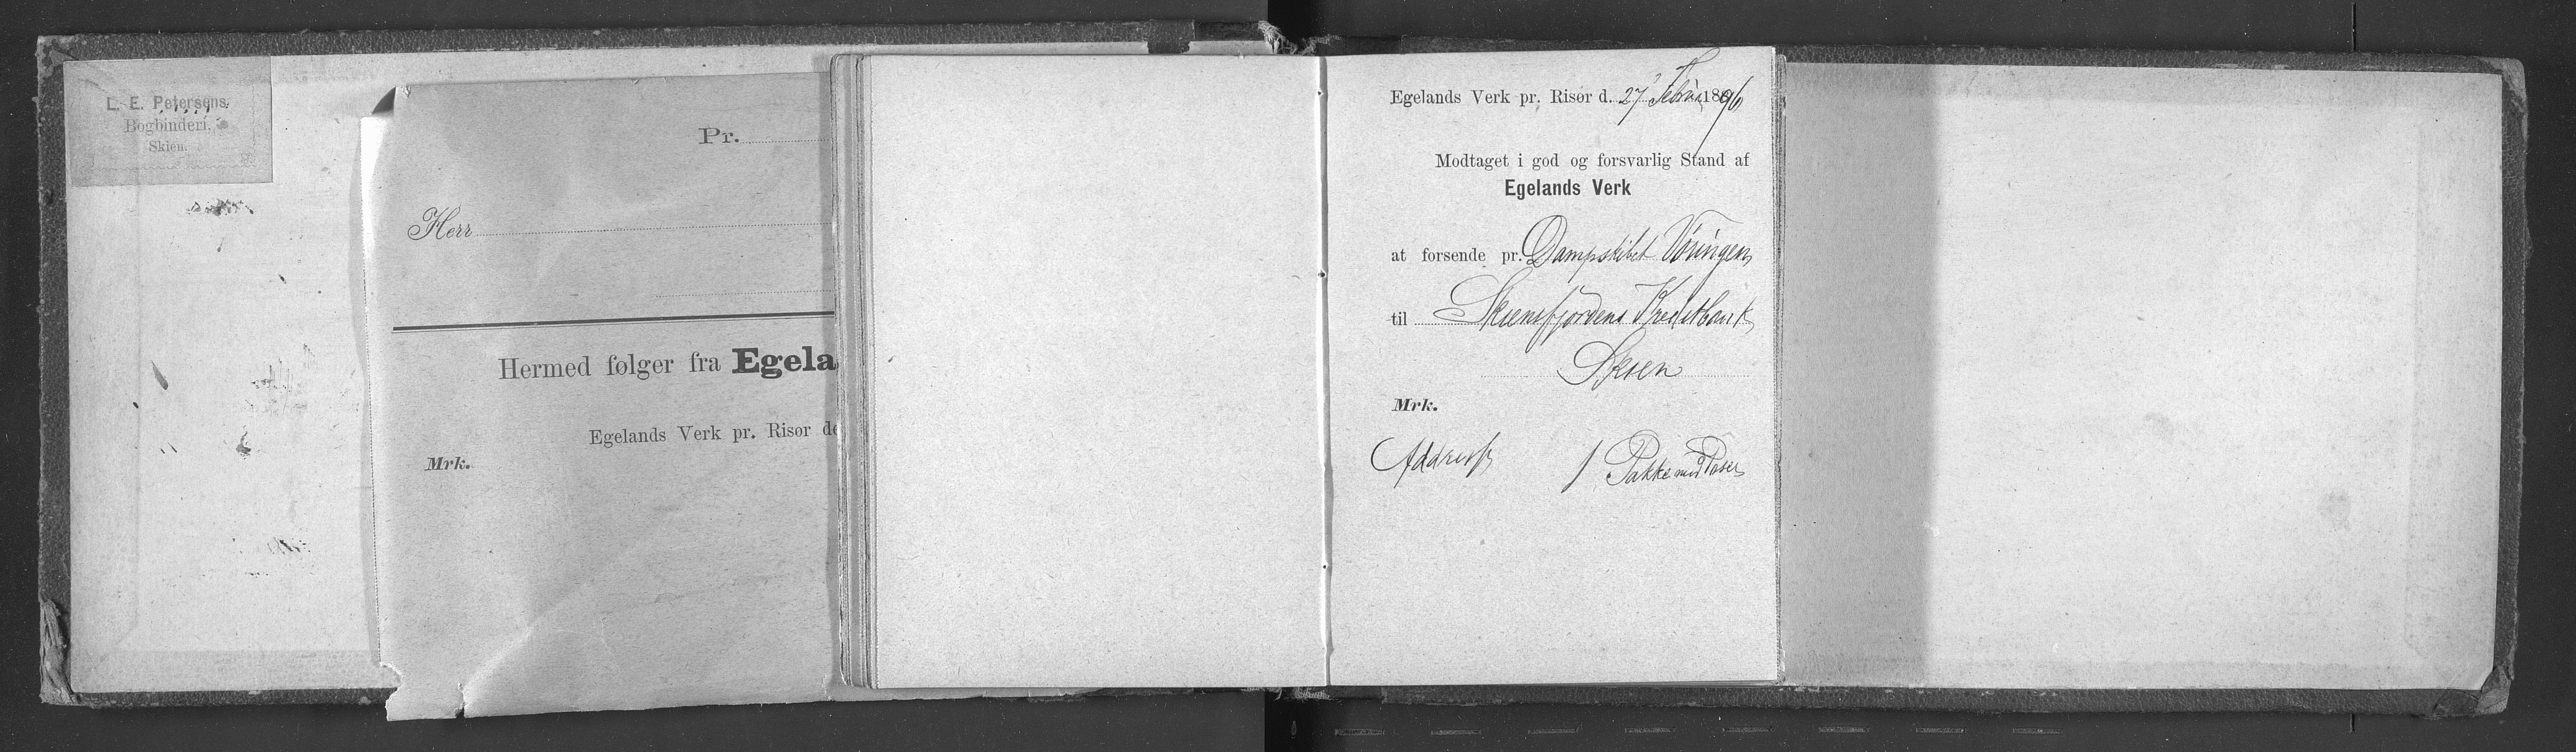 L. E. Petersens
Bogbinderi,
Skien.
Pr.
Herr
Hermed følger fra Egela
Egelands Verk pr. Risør de
Mrk.
Egelands Verk pr. Risør d. 27 Febru 1896
Modtaget i god og forsvarlig Stand af
Egelands Verk
at forsende pr. Dampskibet Vøringen
til Skiensfjordens Kreditbank
Skien
Mrk.
Addresse 1 Pakke med Poser